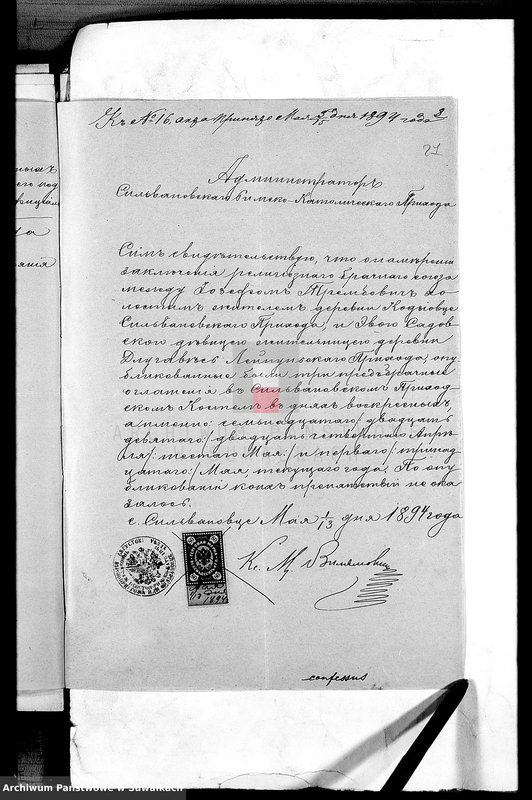 Къ № 16 акта принято Мая 3/15 дня 1894 года
3
21
Администраторъ
Сильвановскаго Римско-Католическаго Прихода
Симъ свидѣтельствую, что о намѣреніи
заключенія религіознаго брачнаго союза
между Іозефомъ Трембовичъ хо-
лостымъ жителемъ деревни
Сильвановскаго Прихода, и Эвою Садов-
ской дѣвицею жительницею деревни
Лейпунскаго Прихода, опу
бликованные были три предбрачныя
оглашенія въ Сильвановскомъ Приход-
скомъ Костелѣ въ дняхъ воскресныхъ
а именно: семьнадцатаго/ двадцать
девятаго:/ двадцать четвертаго Апрѣ-
ля/: шестаго Мая:/ и перваго/: тринад
цатаго:/ Мая текущаго года. По опу
бликованіи коихъ препятствій не ока
залось.
с. Сильвановце Мая 1/13 дня 1894 года
Кс. М.
1894
confessus
Archiwum Państwowe w Suwałkach